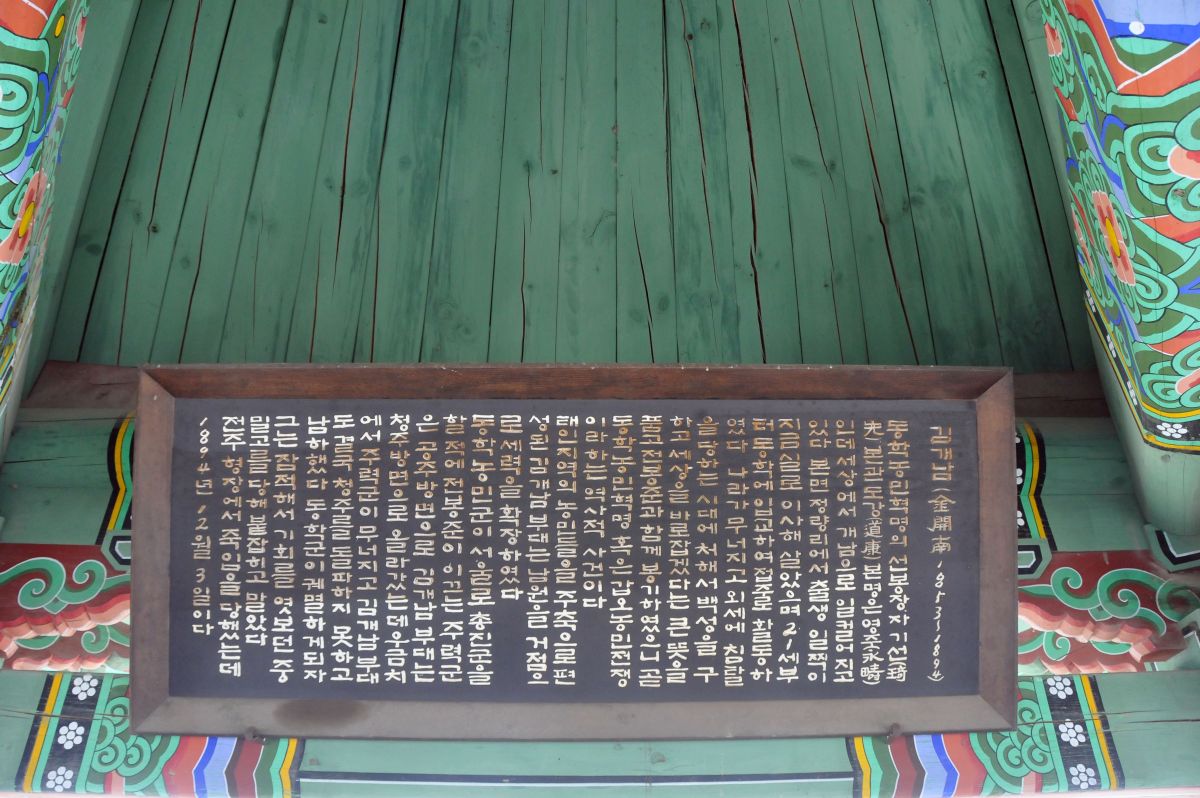 김개남(金開南 1853~1894)
동학농민혁명의 선봉장 자 기선(琦
先)본관 도강道康 본명은 영주永疇)
인데 세상에서 개남으로 일컬어지고
있다 본면 정량리에서 출생 일찍이
지금실로 이사해 살았으며 21세부
터 동학에 입교하여 전주로 활동하
였다 나라가 무너지고 외세에 침탈
을 당하는 시대에 처해서 백성을 구
하고 세상을 바로잡겠다는 큰 뜻을
품고 전봉준과 함께 봉기하였으니 곧
동학농민혁명 혹은 갑오농민전쟁
이라하는 역사적 사건이다
태인지역의 농민들을 주축으로 편
성된 김개남 부대는 남원을 거점으
로 세력을 확장하였다
동학농민군이 서울로 총진군을
할 적에 전봉준이 이끄는 주력군
은 공주방면으로 김개남 부대는
청주방면으로 올라갔는데 우금치
에서 주력군이 무너지고 김개남부대
도 결국 청주를 돌파하지 못하고
남하했다 동학군이 궤멸하게 되자
그는 잠적해서 기회를 엿보던 중
밀고를 당해 붙잡히고 말았다
전주 형장에서 죽임을 당했는데
1894년 12월 3일이다